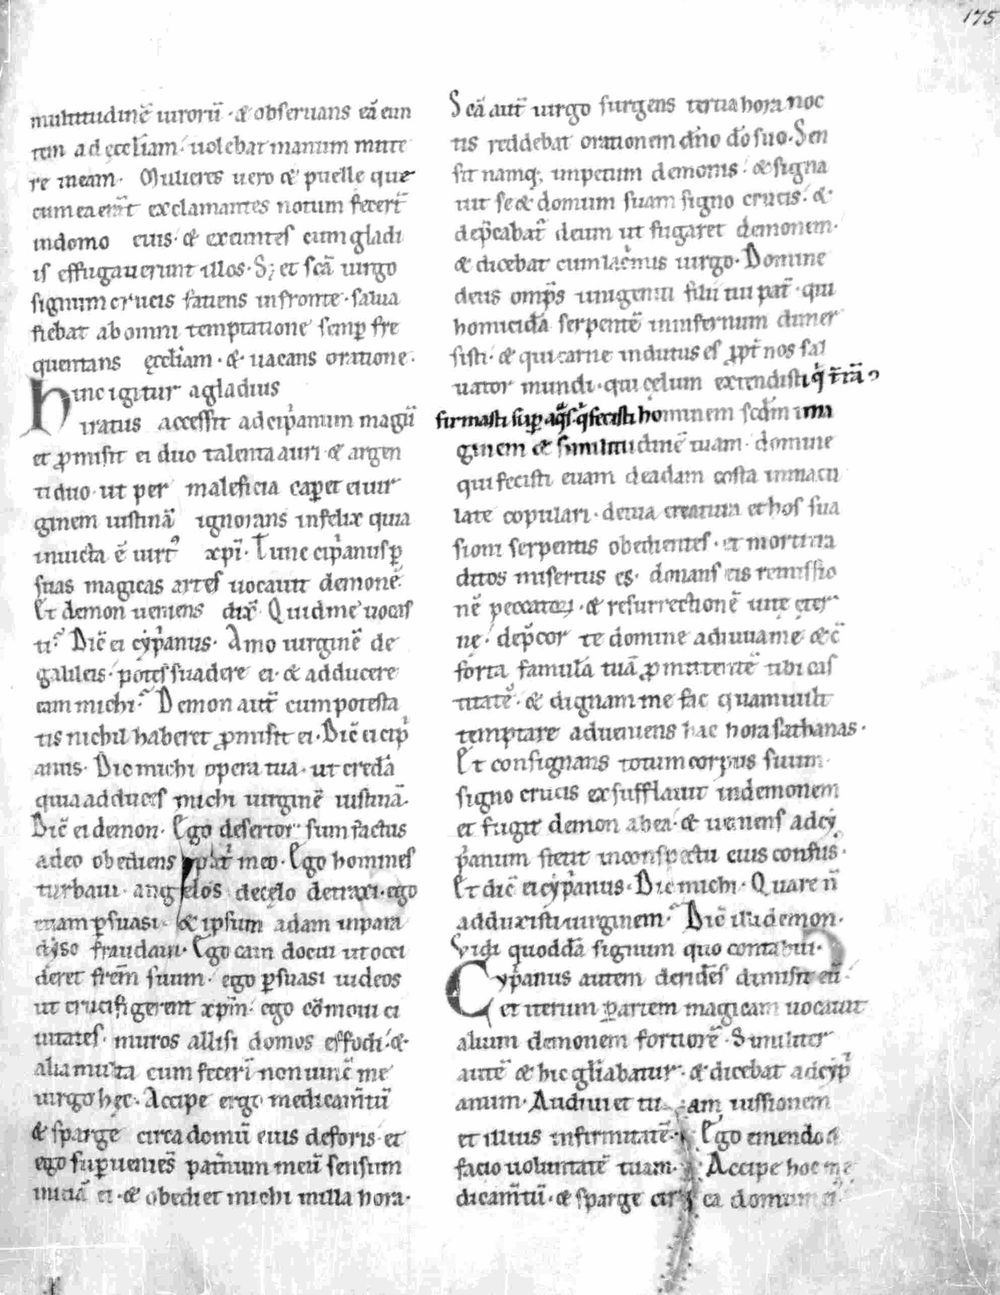 175
multitudinē uirorū · & obseruans eā eun
tem ad ęccłiam · uolebat manum mitte
re in eam · Mulieres uero & puelle que
cum ea erāt exclamantes notum fecert̄
in domo eius · & exeuntes cum gladi
is effugauerunt illos · S; et sc̄a uirgo
signum crucis faciens in fronte · salua
fiebat ab omni temptatione semp̄ fre
quentans ęccłiam · & uacans oratione ·
hinc igitur agladius
iratus accessit ad cip'anum magū
et ꝓmisit ei duo talenta auri & argen
ti duo · ut per maleficia cap̄et ei uir
ginem iustinā ignorans infelix quia
inuicta ē uirt' xp̄i · Tunc cip'anus ꝑ
suas magicas artes uocauit demonē
Et demon ueniens dix̄ Quid me uocas
ti · Dic̄ ei cyp'anus · Amo uirginē de
galileis · potes suadere ei · & adducere
eam michi · Demon aut̄ cum potesta
tis nichil haberet ꝓmisit ei · Dic̄ ei cip'
anus · Dic michi opera tua · ut credā
quia adduces michi uirginē iustinā ·
Dic̄ ei demon · Ego desertor sum factus
a deo obediens pat'i meo · Ego homines
turbaui · angelos de celo detraxi · ego
euam ꝑsuasi · & ipsum adam in para
dyso fraudaui · Ego cain docui ut occi
deret frēm suum · ego ꝑsuasi iudeos
ut crucifigerent xp̄m · ego cōmoui ci
uitates · muros allisi domos effodi · &
alia multa cum fecerī non uinc̄ me
uirgo hęc · Accipe ergo medicam̄tū
& sparge circa domū eius deforis · et
ego supueniēs pat'num meū sensum
mittā ei · & obediet michi in illa hora ·
Sc̄a aut̄ uirgo surgens tertia hora noc
tis reddebat orationem dn̄o do suo · Sen
sit namq; impetum demonis · & signa
uit se & domum suam signo crucis · &
dep̄cabat̄ deum ut fugaret demonem ·
& dicebat cum lac'mis uirgo · Domine
deus omp̄s unigeniti filii tui pat̄ · qui
homicidā serpentē in infernum dimer
sisti · & qui carne indutus es ꝓpt̄ nos sal
uator mundi · qui cęlum extendisti q̄ t̄rā
firmasti sup aq̄s · q̄ fecisti hominem scd̄m ima
ginem & similitudinē tuam · domine
qui fecisti euam de adam costa inmacu
late copulari · deuia creatura et hos sua
sioni serpentis obedientes · et morti tra
ditos misertus es · donans eis remissio
nē peccatoꝝ · & resurrectionē uitę ęter
nę · dep̄cor te domine adiuua me & c̄
forta famulā tuā ꝓmittentē tibi cas
titatē · & dignam me fac quam uult
temptare adueniens hac hora sathanas ·
Et consignans totum corpus suum
signo crucis exsufflauit in demonem
et fugit demon ab ea · & ueniens ad cy
p'anum stetit in conspectu eius confus' ·
Et dic̄ ei cyp'anus · Dic michi · Quare n̄
adduxisti uirginem · Dic̄ illi demon ·
Vidi quoddā signum quo contabui ·
Cyp'anus autem deridēs dimisit eū
et iterum ꝑ artem magicam uocauit
alium demonem fortiorē · Similiter
autē & hic gl̄iabatur · & dicebat ad cyp'
anum · Audiui et tuam iussionem
et illius infirmitatē · Ego emendo &
facio uoluntatē tuam · Accipe hoc me
dicam̄tū · & sparge circa domum